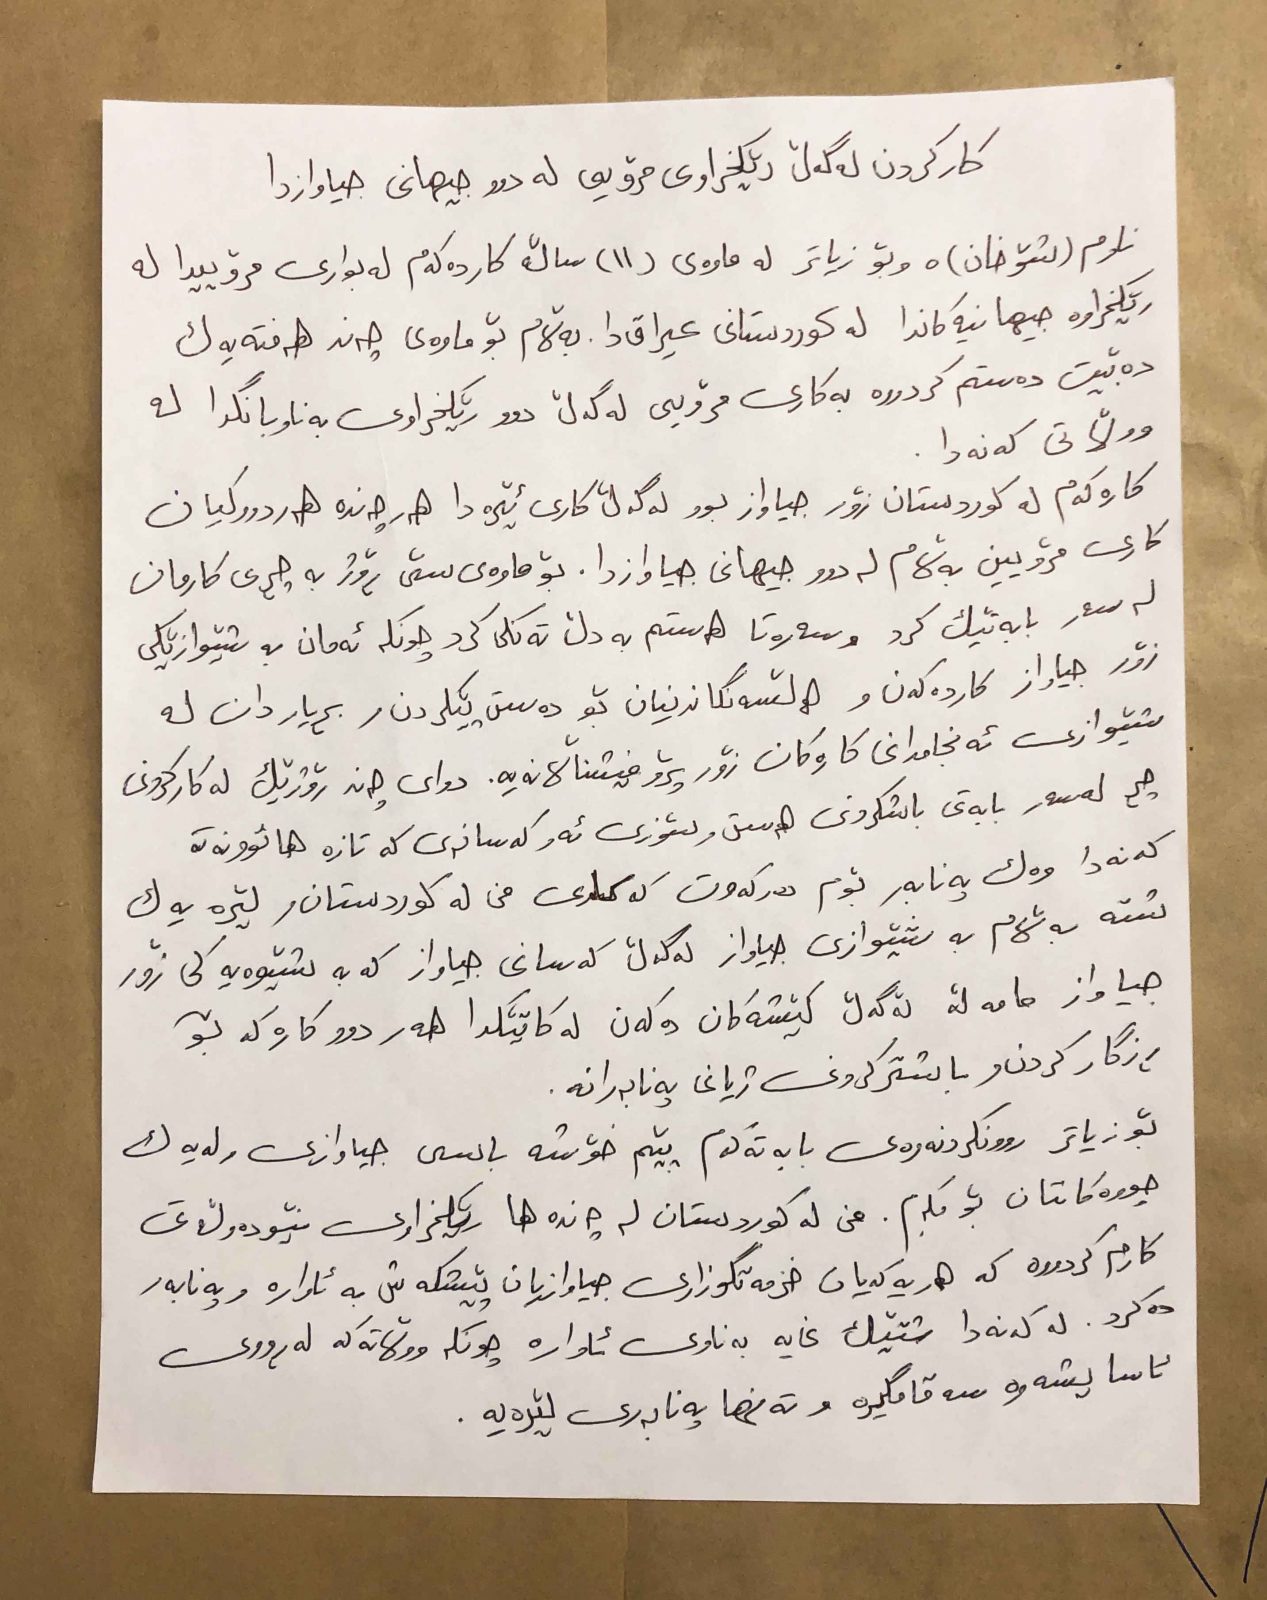 کارکردن لەگەڵ ڕێکخراوی مرۆیی لە دوو جیهانی جیاوازدا
ناوم (شۆخان)ە وبۆ زیاتر لە ماوەی (١١) ساڵە کاردەکەم لەبواری مرۆییدا لە
ڕێکخراوە جیهانیەکاندا لە کوردستانی عیراقدا. بەڵام بۆ ماوەی چەند هەفتەیەک
دەبێت دەستم کردووە بەکاری مرۆیی لەگەڵ دوو ڕێکخراوی بەناوبانگدا لە
ووڵاتی کەنەدا .
کارەکەم لە کوردستان زۆر جیاواز بوو لەگەڵ کاری ئێرە دا هەرچەندە هەردووکیان
کاری مرۆیین بەڵام لە دوو جیهانی جیاوازدا. بۆ ماوەی سێ ڕۆژ بە چڕی کارمان
لە سەر بابەتێک کرد و سەرەتا هەستم بە دڵ تەنگی کرد چونکە ئەمان بە شێوازێکی
زۆر جیاواز کاردەکەن و هەلسەنگاندنیان بۆ دەست پێکردن و بڕیار دان لە
شێوازی ئەنجامدانی کارەکان زۆر پرۆفیشناڵانەیە. دوای چەند ڕۆژێک لە کارکردنی
چڕ لەسەر بابەتی باشکردنی هەست و سۆزی ئەو کەسانەی کە تازە هاتوونەتە
کەنەدا وەک پەنابەر بۆم دەرکەوت کە کاری من لە کوردستان و لێرە یەک
شتە بەڵام بە شێوازی جیاواز لەگەڵ کەسانی جیاواز کە بە شێوەیەکی زۆر
جیاواز مامەڵە لەگەڵ کێشەکان دەکەن لە کاتێکدا هەر دوو کارەکە بۆ
ڕزگار کردن و باشترکردنی ژیانی پەنابەرانە .
بۆ زیاتر روونکردنەوەی بابەتەکەم پێم خۆشە باسی جیاوازی و لەیەک
چووەکانتان بۆ بکەم . من لە کوردستان لە چەندەها ڕێکخراوی نێودەوڵەتی
کارم کردووە کە هەریەکەیان خزمەتگوزاری جیاوازیان پێشکەش بە ئاوارە و پەنابەر
دەکرد. لە کەنەدا شتێک نیە بەناوی ئاوارە چونکە ووڵاتەکە لەڕووی
ئاسایشەوە سەقامگیرە و تەنها پەنابەری لێرەیە .